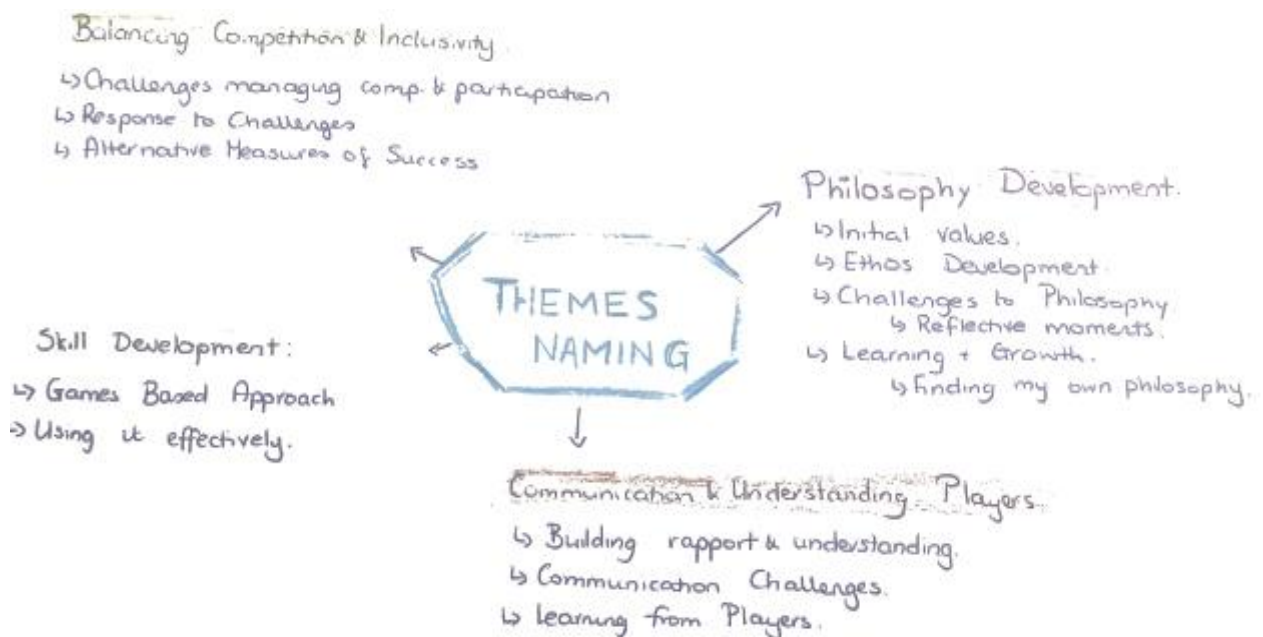 Balancing Competition & Inclusivity
↳ Challenges managing comp. & participation
↳ Response to Challenges
↳ Alternative Measures of Success
Philosophy Development.
↳ Initial values.
↳ Ethos Development.
↳ Challenges to Philosophy
↳ Reflective moments.
↳ Learning + Growth.
↳ Finding my own philosophy.
THEMES
NAMING
Skill Development:
↳ Games Based Approach
→ Using it effectively.
Communication & Understanding Players.
↳ Building rapport & understanding.
↳ Communication Challenges.
↳ Learning from Players.